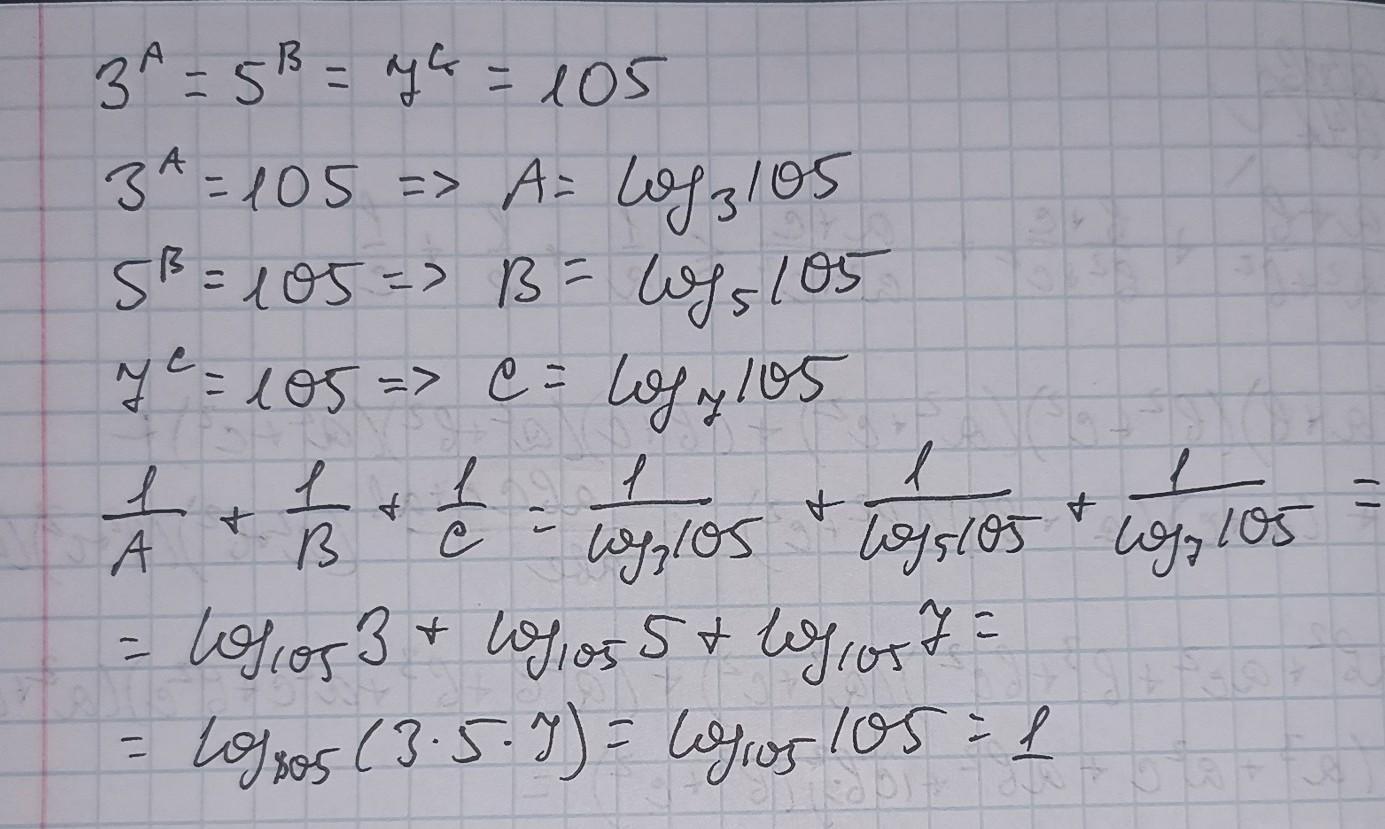 3^A = 5^B = 7^C = 105
3^A = 105 => A = log₃105
5^B = 105 => B = log₅105
7^C = 105 => C = log₇105
1/A + 1/B + 1/C = 1/log₃105 + 1/log₅105 + 1/log₇105 =
= log₁₀₅3 + log₁₀₅5 + log₁₀₅7 =
= log₁₀₅(3·5·7) = log₁₀₅105 = 1